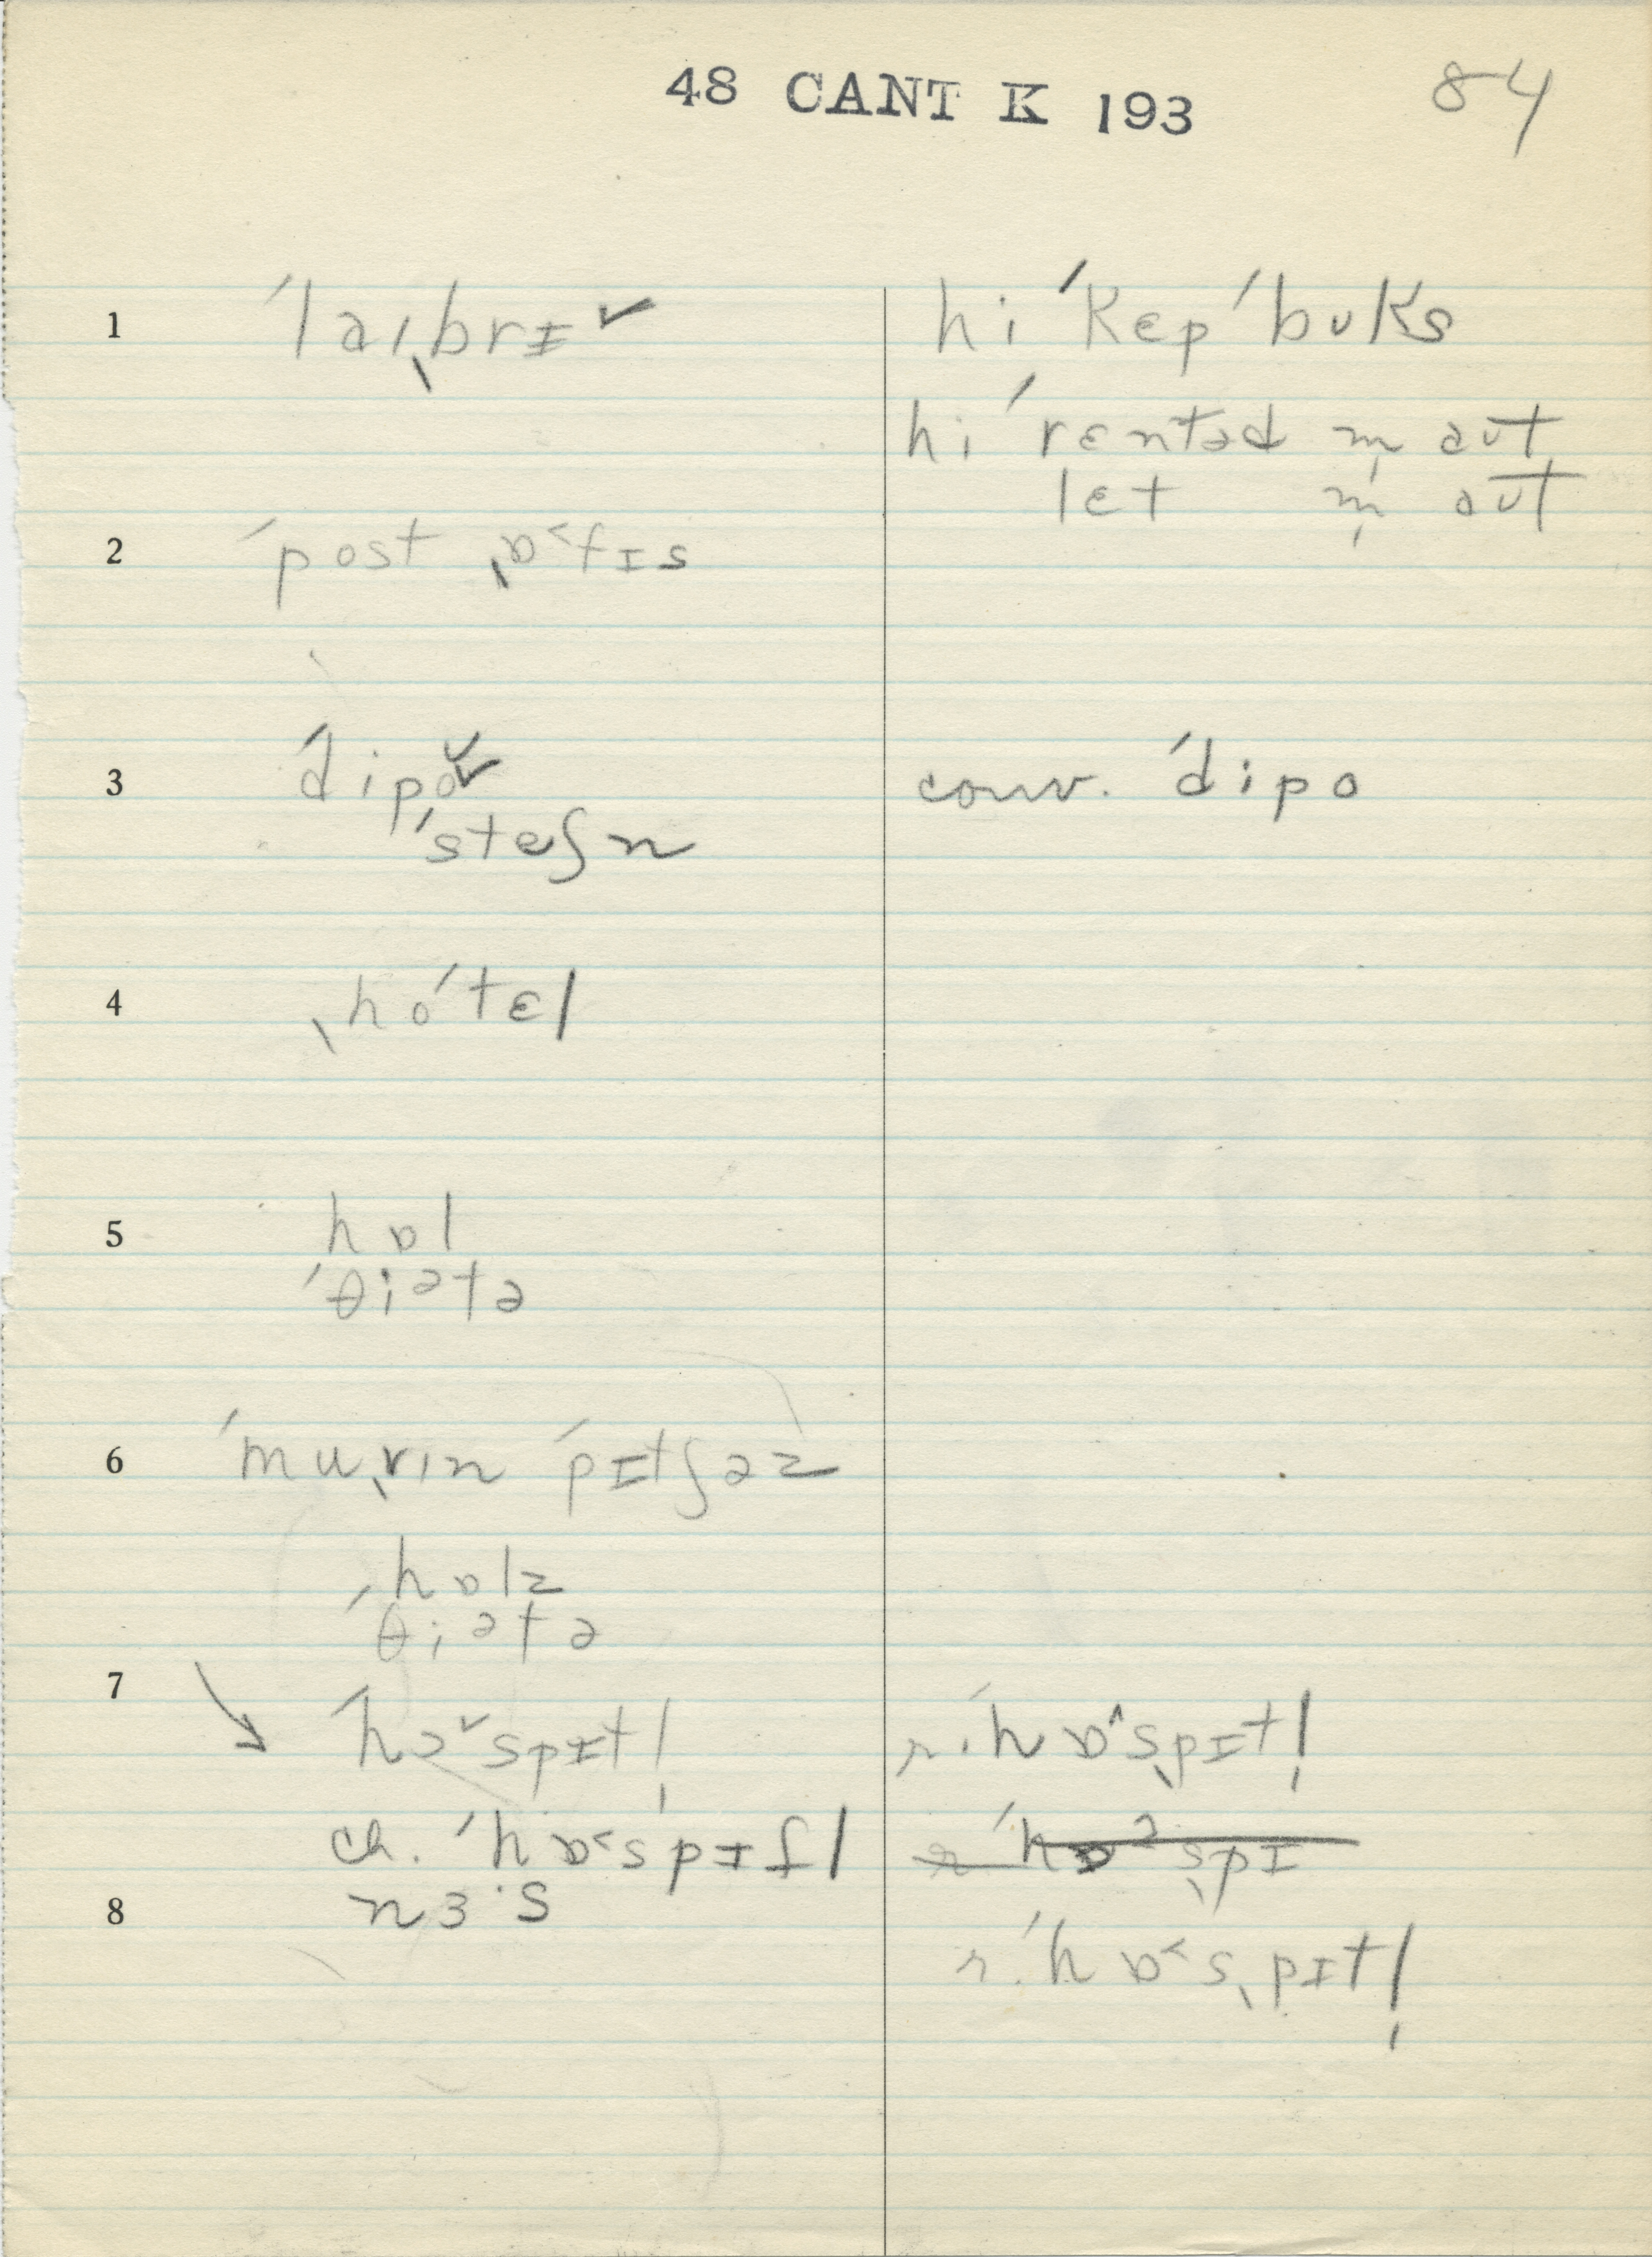 48 CANT K 193
84
1 ˈlaɪˌbrɪ˅ hi ˈkɛp ˈbʊks
hi ˈrɛntəd m̩ aʊt
lɛt m̩ aʊt
2 ˈpost ˌɒ˂fɪs
3 ˈdipo˅ conv. ˈdipo
ˈsteʃn
4 ˌhoˈtɛl
5 hɒl
ˈθiətə
6 ˈmuˌvɪn ˈpɪtʃəz
hɒlz
ˈθiətə
7 ˈhɔ˅spɪtl̩ r. ˈhɒ˄sˌpɪtl̩
ch. ˈhɒ˂spɪtl r ˈhɒɔsˌpɪ
8 nɜ·s
r. ˈhɒ˂sˌpɪtl̩